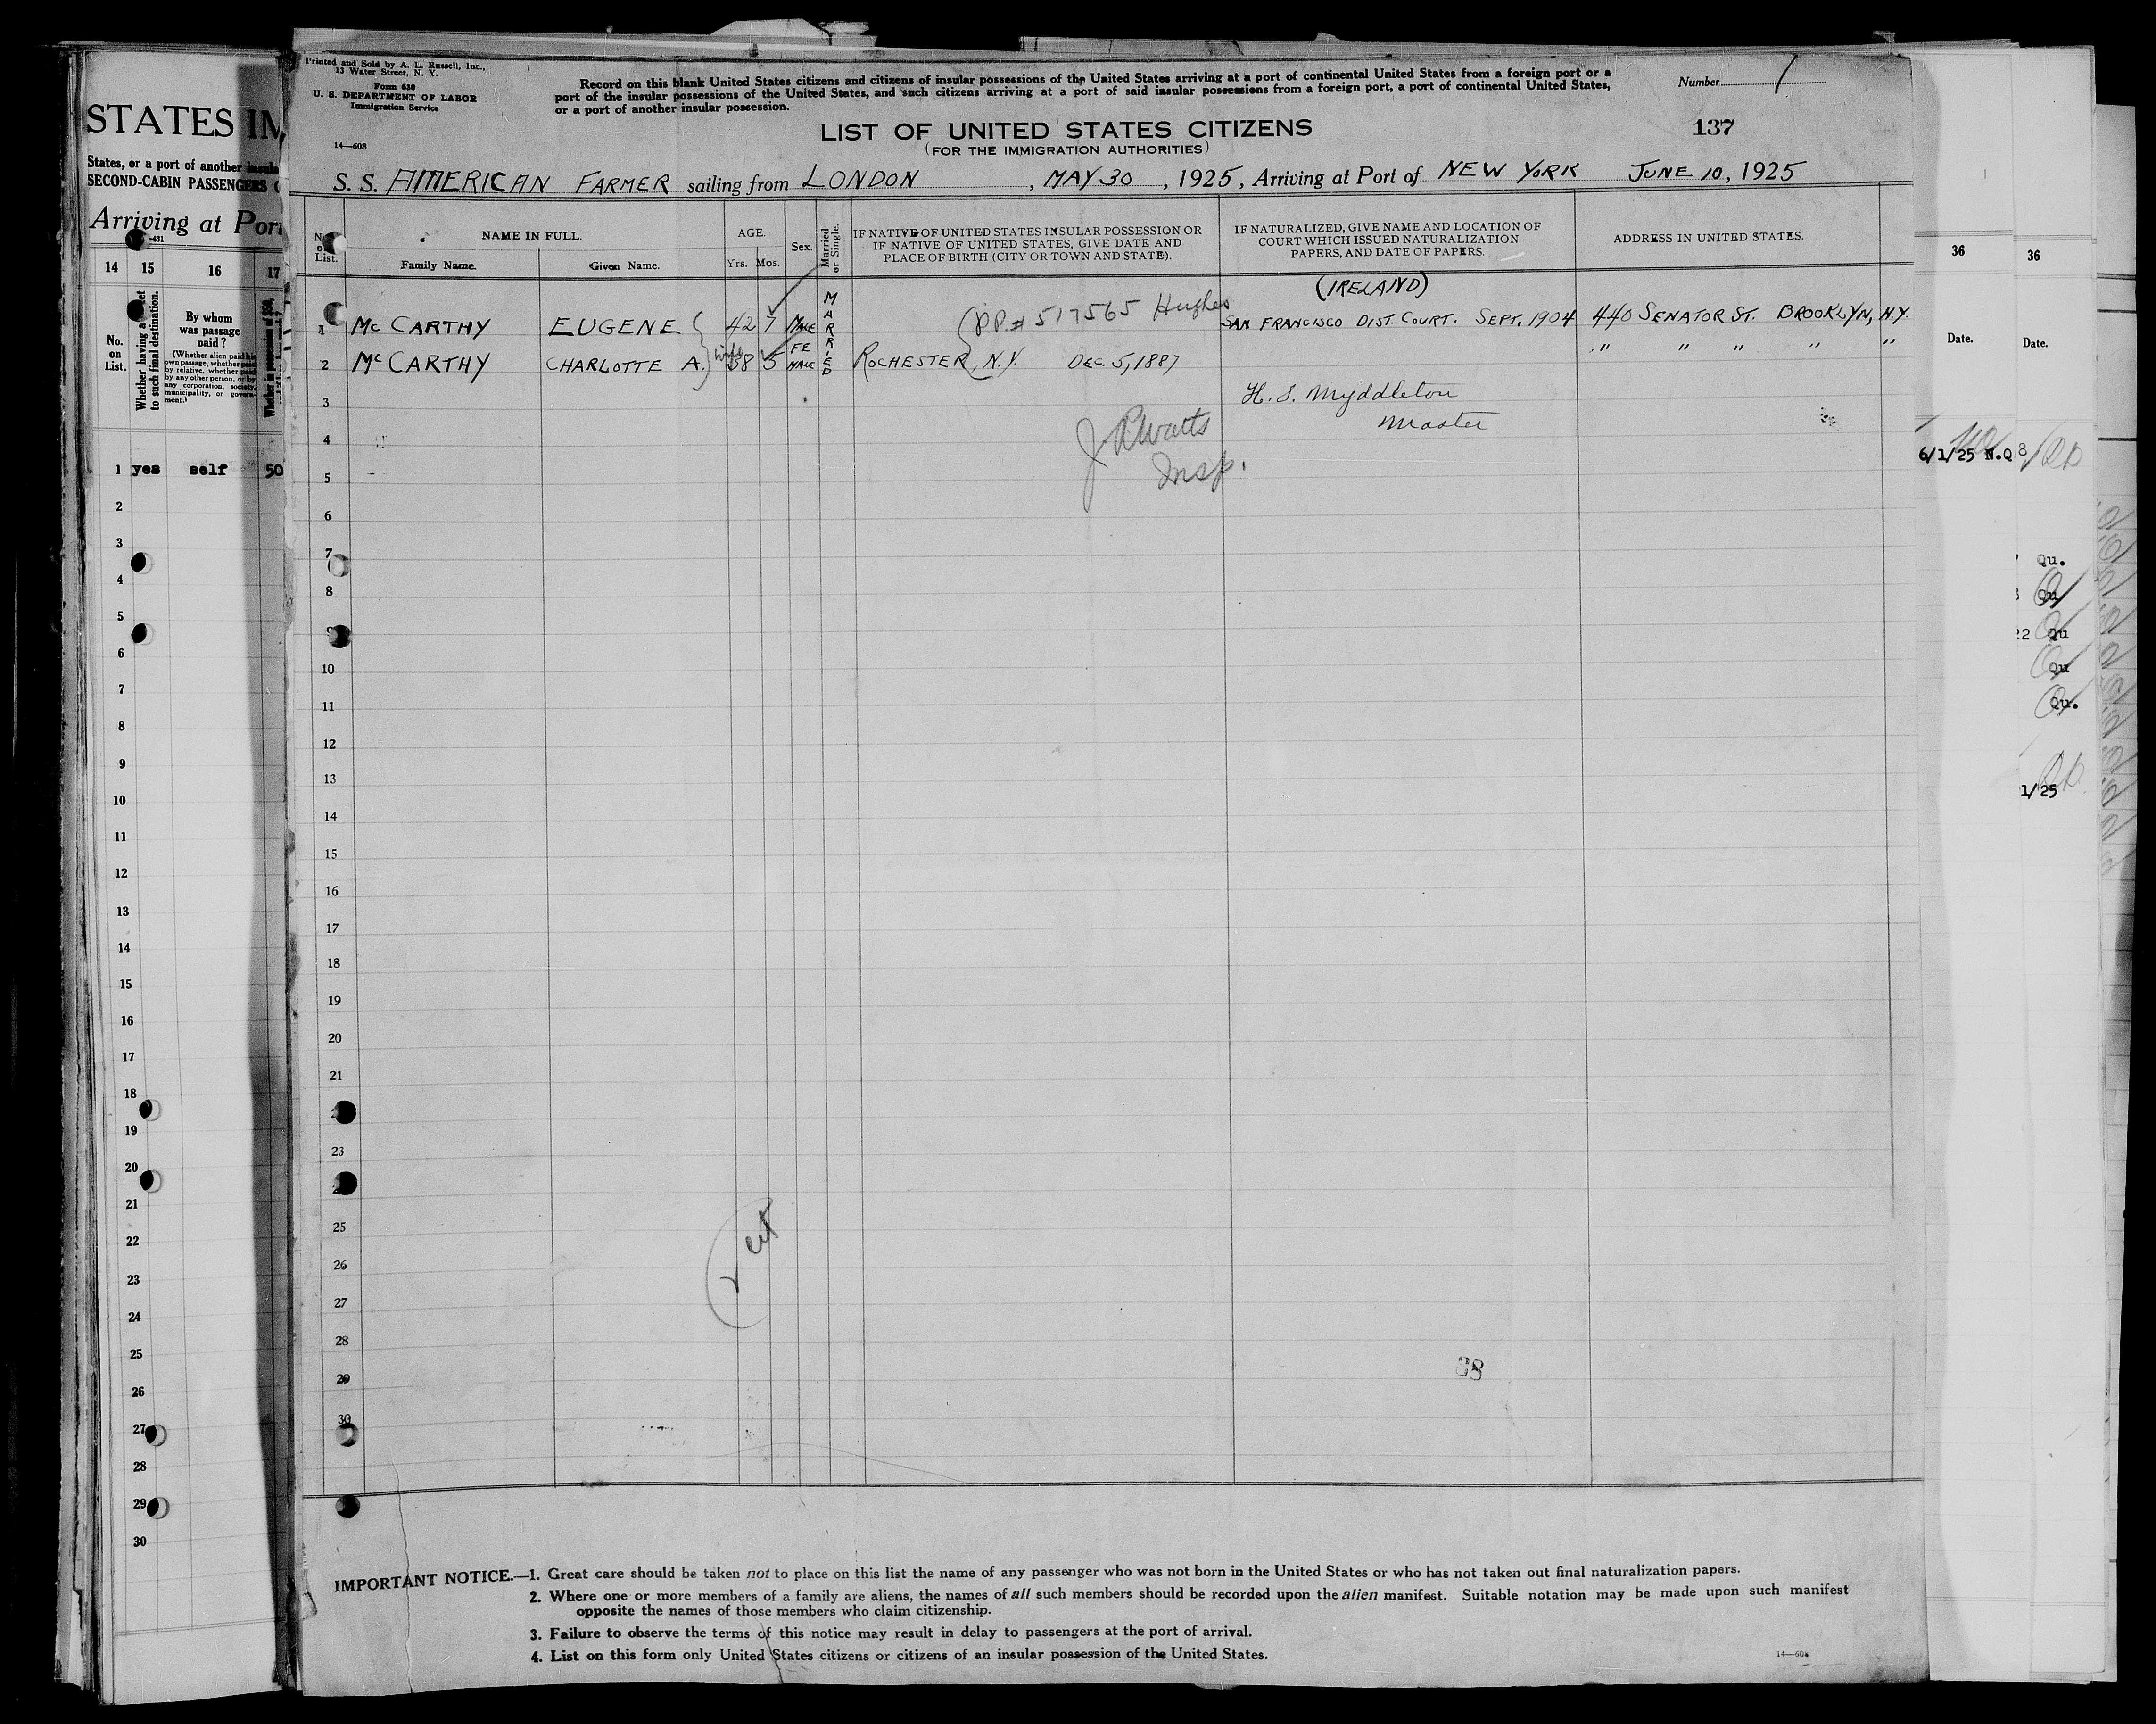 STATES IM
States, or a port of another insula
SECOND-CABIN PASSENGERS
Arriving at Port
14 15 16 17
No. on List.
Whether having a
to such final destination.
By whom was passage paid?
(Whether alien paid his own passage, whether paid by relative, whether paid by any other person, or by any corporation, society, municipality, or government.)
Whether in possession of $50,
1 yes self 50
2
3
4
5
6
7
8
9
10
11
12
13
14
15
16
17
18
19
20
21
22
23
24
25
26
27
28
29
30
Printed and Sold by A. L. Russell, Inc.,
13 Water Street, N. Y.
Form 630
U. S. DEPARTMENT OF LABOR
Immigration Service
14—608
Record on this blank United States citizens and citizens of insular possessions of the United States arriving at a port of continental United States from a foreign port or a
port of the insular possessions of the United States, and such citizens arriving at a port of said insular possessions from a foreign port, a port of continental United States,
or a port of another insular possession.
Number 1
LIST OF UNITED STATES CITIZENS
137
(FOR THE IMMIGRATION AUTHORITIES)
S. S. AMERICAN FARMER sailing from LONDON, MAY 30, 1925, Arriving at Port of NEW YORK JUNE 10, 1925
No. on List.
NAME IN FULL.
Family Name. Given Name.
AGE.
Yrs. Mos.
Sex.
Married or Single.
IF NATIVE OF UNITED STATES INSULAR POSSESSION OR
IF NATIVE OF UNITED STATES, GIVE DATE AND
PLACE OF BIRTH (CITY OR TOWN AND STATE).
IF NATURALIZED, GIVE NAME AND LOCATION OF
COURT WHICH ISSUED NATURALIZATION
PAPERS, AND DATE OF PAPERS.
ADDRESS IN UNITED STATES.
(IRELAND)
1 McCARTHY EUGENE 42 7 MALE MARRIED PP.# 517565 Hughes SAN FRANCISCO DIST. COURT. SEPT. 1904 440 SENATOR ST. BROOKLYN, N.Y.
2 McCARTHY CHARLOTTE A. wife 38 5 FEMALE ROCHESTER, N.Y. DEC. 5, 1887 " " " " "
3 H. S. Myddleton
4 Master
J. R. Watts
5 Insp.
6
7
8
9
10
11
12
13
14
15
16
17
18
19
20
21
23
25
26
27
28
29
30
88
IMPORTANT NOTICE.—1. Great care should be taken not to place on this list the name of any passenger who was not born in the United States or who has not taken out final naturalization papers.
2. Where one or more members of a family are aliens, the names of all such members should be recorded upon the alien manifest. Suitable notation may be made upon such manifest
opposite the names of those members who claim citizenship.
3. Failure to observe the terms of this notice may result in delay to passengers at the port of arrival.
4. List on this form only United States citizens or citizens of an insular possession of the United States.
14—608
36
Date.
6/1/25 N.Q
36
Date.
8
Qu.
Qu
22 Qu
Qu
Qu.
1/25